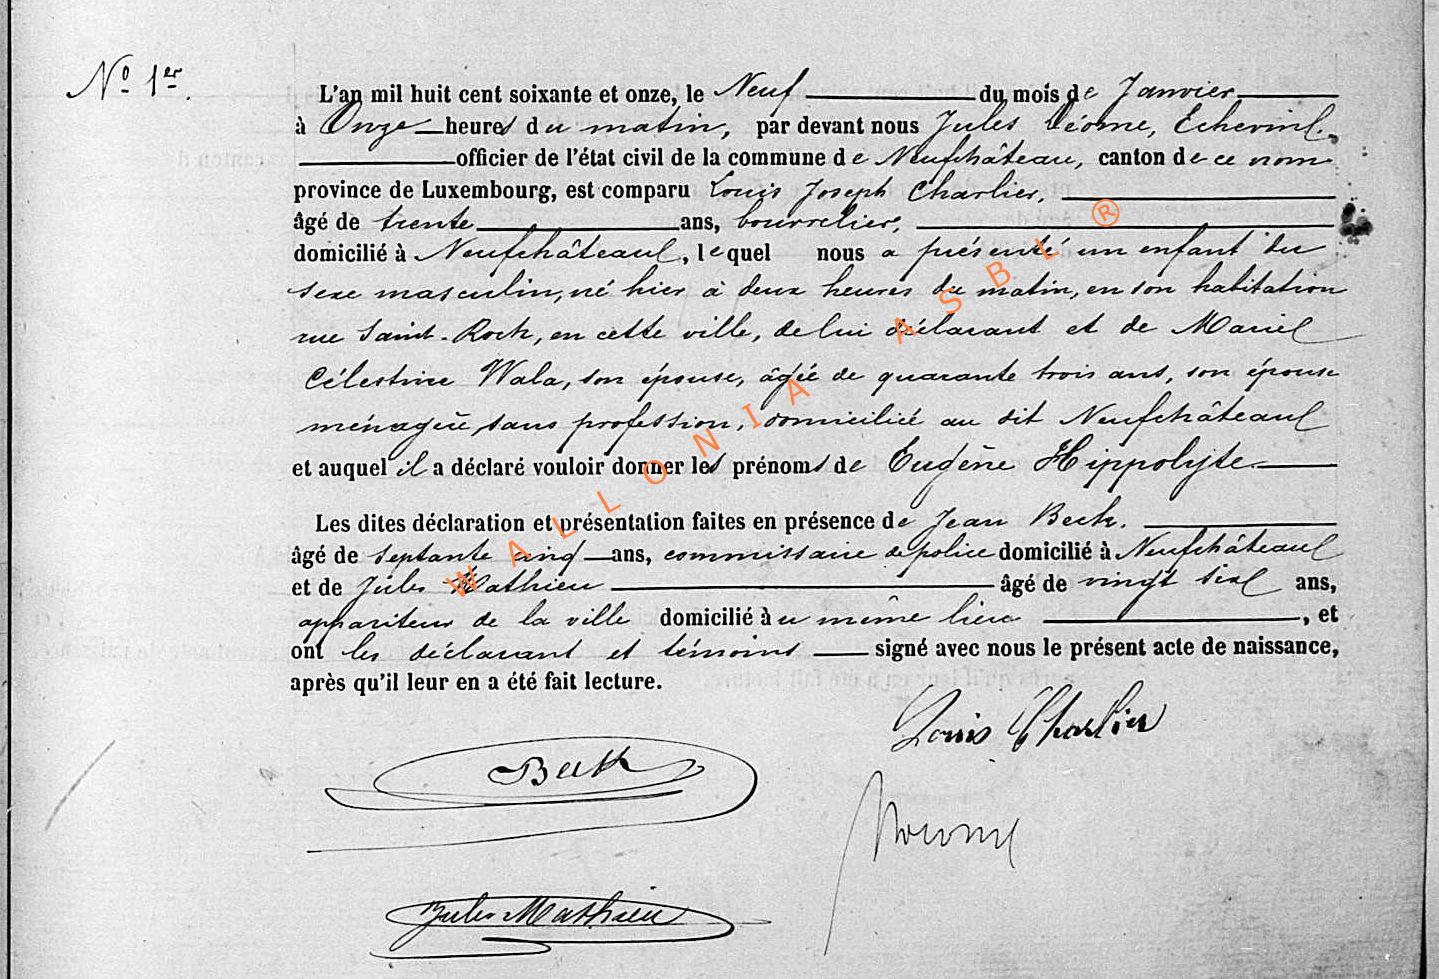 N° 1er.
L'an mil huit cent soixante et onze, le Neuf du mois de Janvier
à Onze heures du matin, par devant nous Jules Léome, Echevin,
officier de l'état civil de la commune de Neufchâteau, canton de ce nom
province de Luxembourg, est comparu Louis Joseph Charlier,
âgé de trente ans, bourrelier,
domicilié à Neufchâteau, lequel nous a présenté un enfant du
sexe masculin, né hier à deux heures du matin, en son habitation
rue Saint-Roch, en cette ville, de lui déclarant et de Marie
Célestine Wala, son épouse, âgée de quarante trois ans, son épouse
ménagère, sans profession, domiciliée au dit Neufchâteau
et auquel il a déclaré vouloir donner les prénoms de Eugène Hippolyte
Les dites déclaration et présentation faites en présence de Jean Beck.
âgé de septante cinq ans, commissaire de police domicilié à Neufchâteau
et de Jules Mathieu âgé de vingt six ans,
appariteur de la ville domicilié au même lieu , et
ont les déclarant et témoins signé avec nous le présent acte de naissance,
après qu'il leur en a été fait lecture.
Louis Charlier
Beck
Jules Mathieu
WALLONIA ASBL ®